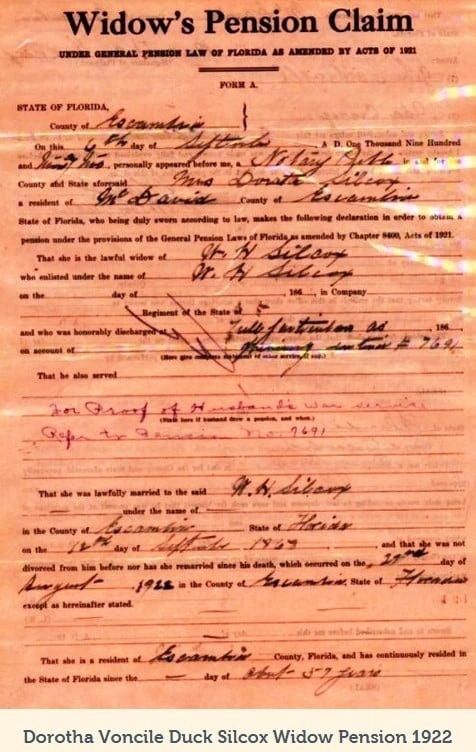 Widow's Pension Claim
UNDER GENERAL PENSION LAW OF FLORIDA AS AMENDED BY ACTS OF 1921
FORM A.
STATE OF FLORIDA,
County of Escambia
On this 6th day of A D. One Thousand Nine Hundred
and personally appeared before me, a Notary in and for
County and State aforesaid Mrs Silcox
a resident of McDavid County of Escambia
State of Florida, who being duly sworn according to law, makes the following declaration in order to obtain a
pension under the provisions of the General Pension Laws of Florida as amended by Chapter 8400, Acts of 1921.
That she is the lawful widow of W. H Silcox
who enlisted under the name of W. H Silcox
on the day of , 186 , in Company
Regiment of the State of
and who was honorably discharged at as , 186 ,
on account of # 7691
(Here give complete statement of other service, if any.)
That he also served
For Proof of Husbands war service
(State here if husband drew a pension, and when.)
Refer to Pension No. 7691
That she was lawfully married to the said W. H. Silcox
under the name of
in the County of Escambia State of
on the 12th day of , and that she was not
divorced from him before nor has she remarried since his death, which occurred on the 22nd day of
August 1922 in the County of Escambia, State of Florida
except as hereinafter stated.
That she is a resident of Escambia County, Florida, and has continuously resided in
the State of Florida since the day of about 57 years
Dorotha Voncile Duck Silcox Widow Pension 1922